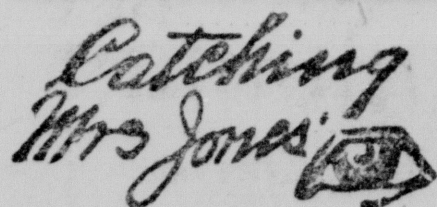 Catching
Mrs Jones'